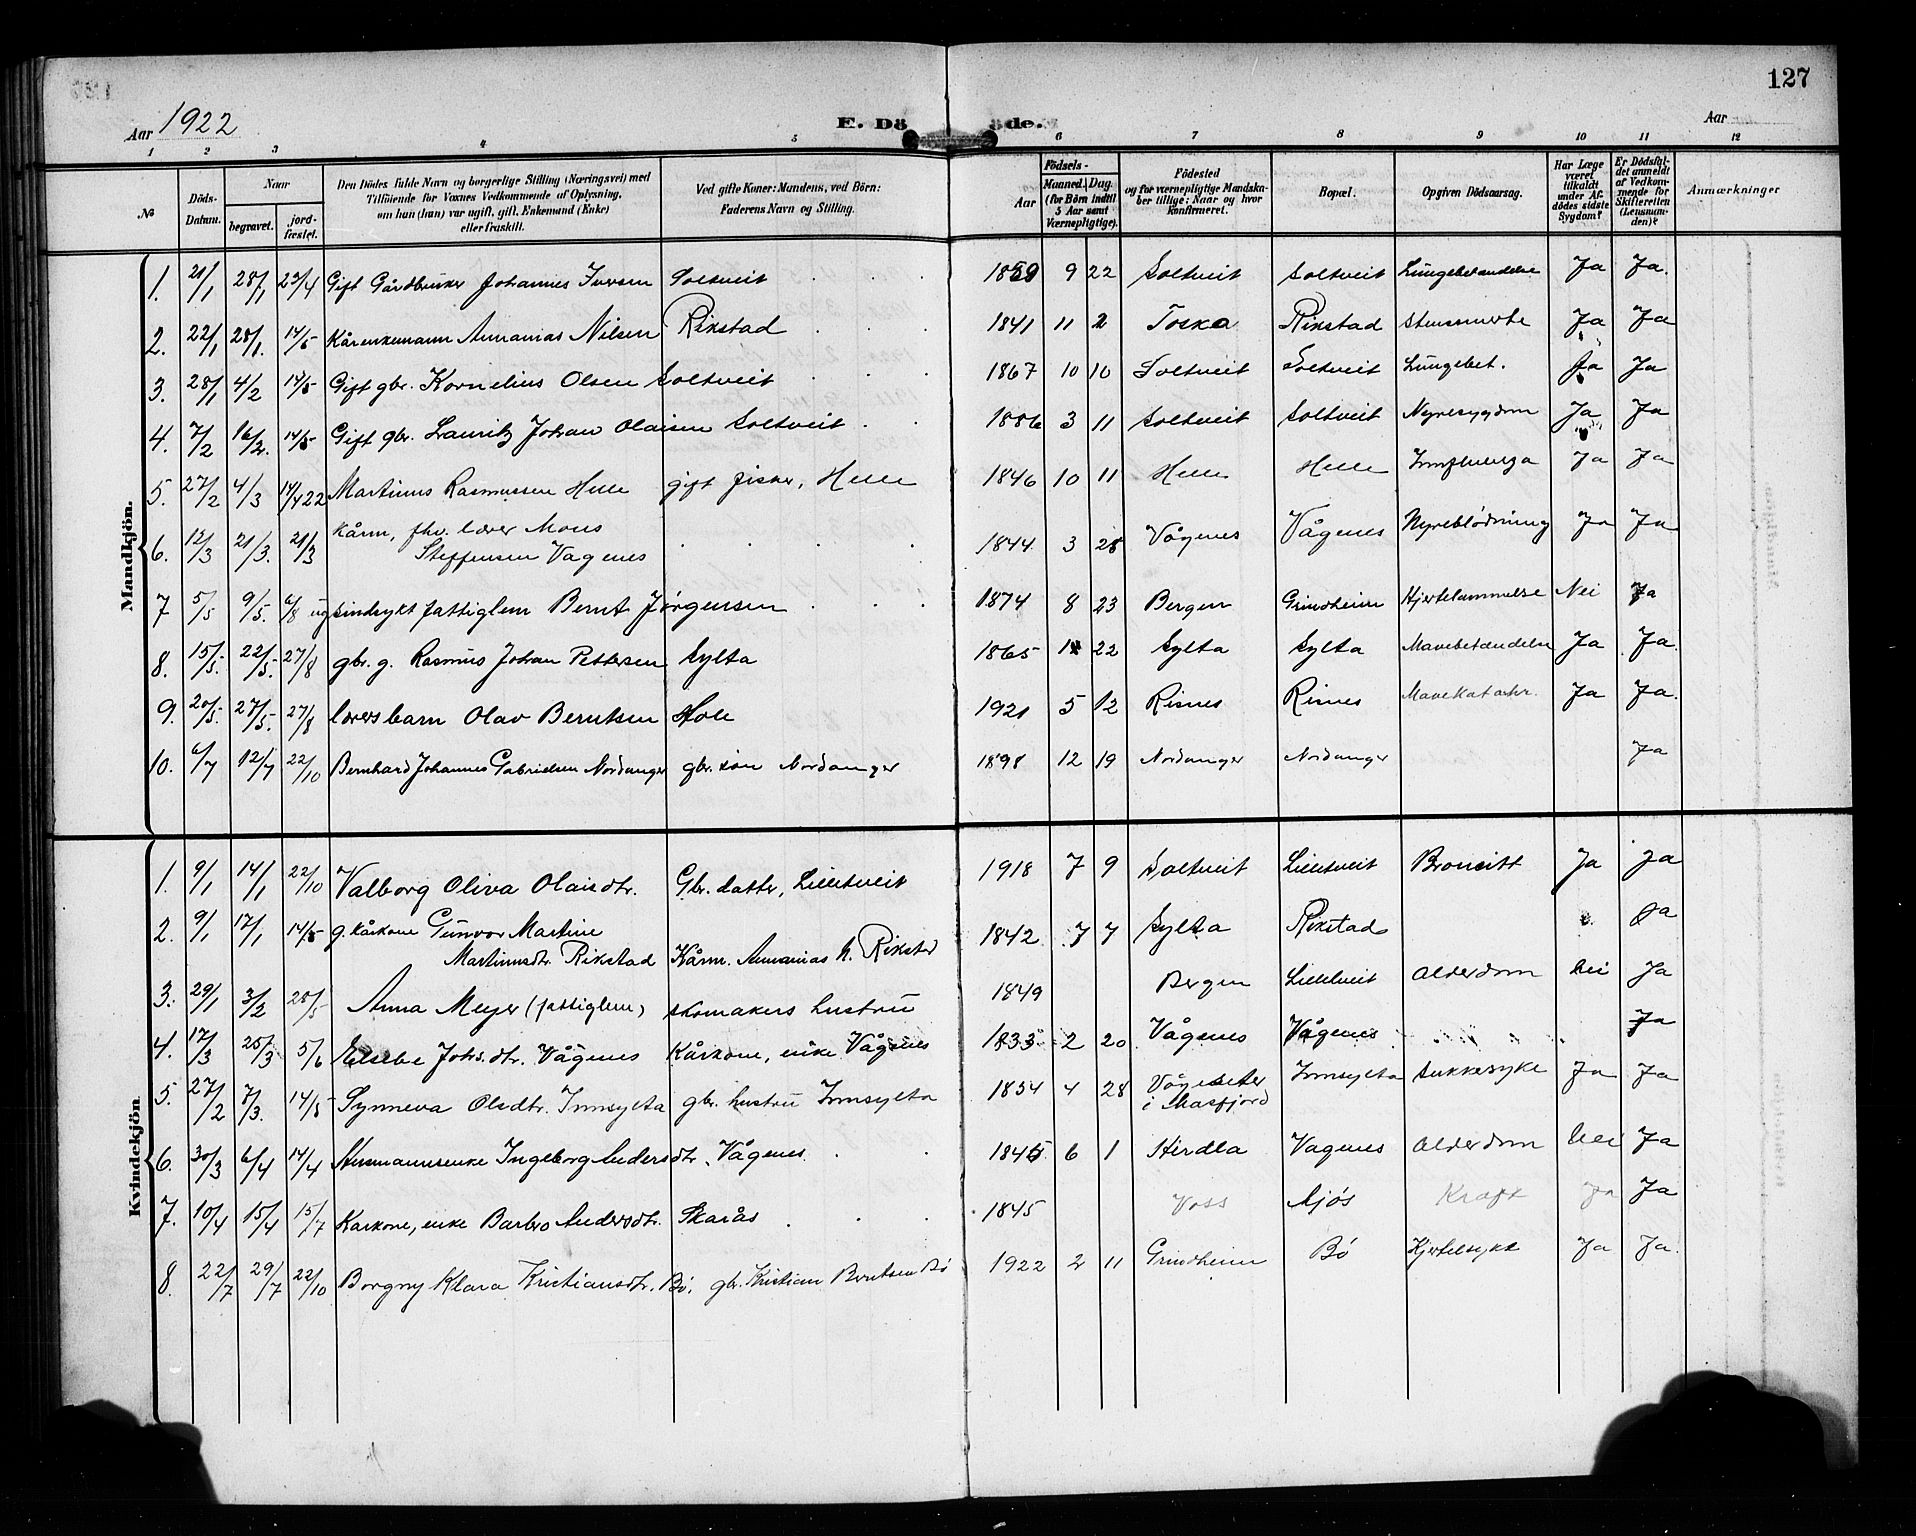 127
Aar 1922
E. Dö öde.
Aar
1 2 3 4 5 6 7 8 9 10 11 12
№
Döds-Datum.
Naar
begravet.
jord-fæstet.
Den Dödes fulde Navn og borgerlige Stilling (Næringsvei) med
Tilföiende for Voxnes Vedkommende af Oplysning,
om han (hun) var ugift, gift, Enkemand (Enke)
eller fraskilt.
Ved gifte Koner: Mandens, ved Börn:
Faderens Navn og Stilling.
Födsels-
Aar
Maaned. Dag.
(for Börn indtil
5 Aar samt
Værnepligtige).
Födested
og for værnepligtige Mandska-
ber tillige: Naar og hvor
konfirmeret.
Bopæl.
Opgiven Dödsaarsag.
Har Læge
været
tilkaldt
under Af-
dödes sidste
Sygdom?
Er Dödsfal-
det anmeldt
af Vedkom-
mende for
Skifteretten
(Lensman-
den)?
Anmærkninger
Mandkjön.
1. 21/1 28/1 23/4 Gift Gårdbruker Johannes Iversen Soltveit 1859 9 22 Soltveit Soltveit Lungebetændelse Ja Ja.
2. 22/1 28/1. 14/5 Kårenkemann Annanias Nilsen Rikstad 1841 11 2 Toska Rikstad Stenssmerte Ja Ja
3. 28/1 4/2 14/5 Gift gbr. Kornelius Olsen Soltveit 1867 10 10 Soltveit Soltveit Lungebet. Ja Ja
4. 7/2 16/2. 14/5 Gift gbr. Lauritz Johan Olaisen Soltveit 1886 3 11 Soltveit Soltveit Nyresygdom Ja Ja
5. 27/2 4/3 14/4 22 Martinus Rasmussen Helle gift fisker, Helle 1846 10 11 Helle Helle Innfluenza Ja Ja
6. 12/3 21/3. 21/3 Kårm, fhv. lærer Mons
Steffensen Vagenes 1844 3 28 Vågenes Vågenes Nyreblödning Ja Ja
7 5/5 9/5. 6/8 ug sindsykt fattiglem Bernt Jörgensen 1874 8 23 Bergen Grindheim Hjertelammelse Nei Ja
8. 15/5. 22/5. 27/8 gbr. g. Rasmus Johan Pettersen Sylta 1865 22 Sylta Sylta Mavebetændelse Ja Ja.
9. 20/5. 27/5. 27/8 lærersbarn Olav Berntsen Hole 1921 5 12 Risnes Risnes Mavekatarhr. Ja Ja.
10. 6/7 12/7 22/10 Bernhard Johannes Gabrielsen Nordanger gbr. søn Nordanger 1898 12 19 Nordanger Nordanger Ja
Kvindekjön.
1. 9/1 14/1 22/10 Valborg Oliva Olaisdtr. Gbr. datter, Lilletveit 1918 7 9 Soltveit Lilletveit Broncitt Ja Ja
2. 9/1 17/1 14/5 g. kårkone Gunvor Martine
Martinusdtr. Rikstad Kårm. Annanias N. Rikstad 1842 7 7 Sylta Rikstad Ja
3. 29/1 3/2 28/5 Anna Meyer (fattiglem) skomakers hustru 1849 Bergen Lilletveit Alderdom Nei Ja
4. 17/3 25/3 5/6 Elsebe Johs.dtr. Vågenes Kårkone, enke Vågenes 1833 2 20 Vågenes Vågenes Ja
5. 27/2 7/3. 14/5 Synneva Olsdtr. Innsylta gbr. hustru Innsylta 1854 4 28 Vågseter
i Masfjord Innsylta Sukkesyke Ja Ja
6. 30/3 6/4 14/4 Husmannsenke Ingeborg Andersdtr. Vågenes. 1845 6 1 Herdla Vagenes Alderdom Nei Ja
7. 10/4 15/4 15/7 Karkone, enke Barbro Andersdtr. Skarås 1845 Voss Mjös Kraft Ja Ja
8. 22/7 29/7 22/10 Borgny Klara Kristiansdtr. Bö. gbr. Kristian Berntsen Bö 1922 2 11 Grindheim Bö Kjertelsykt Ja Ja.